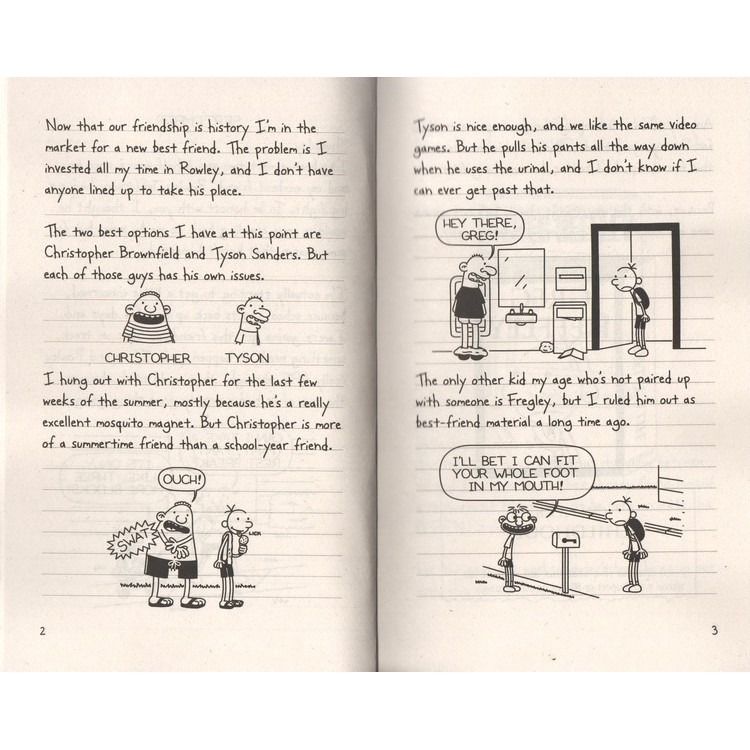 Now that our friendship is history I'm in the
market for a new best friend. The problem is I
invested all my time in Rowley, and I don't have
anyone lined up to take his place.
The two best options I have at this point are
Christopher Brownfield and Tyson Sanders. But
each of those guys has his own issues.
CHRISTOPHER TYSON
I hung out with Christopher for the last few
weeks of the summer, mostly because he's a really
excellent mosquito magnet. But Christopher is more
of a summertime friend than a school-year friend.
OUCH!
SWAT
LICK
2
Tyson is nice enough, and we like the same video
games. But he pulls his pants all the way down
when he uses the urinal, and I don't know if I
can ever get past that.
HEY THERE,
GREG!
The only other kid my age who's not paired up
with someone is Fregley, but I ruled him out as
best-friend material a long time ago.
I'LL BET I CAN FIT
YOUR WHOLE FOOT
IN MY MOUTH!
3